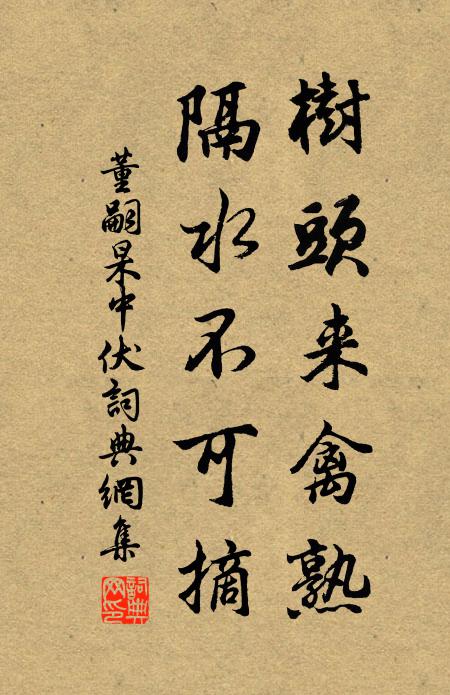 樹頭来禽熟
隔水不可摘
董嗣杲中伏詞典網集
詞典网印